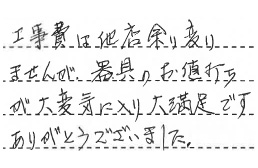 工事費は他店余り変り
ませんが、器具のお値打ち
が大変気に入り大満足です
ありがとうございました。